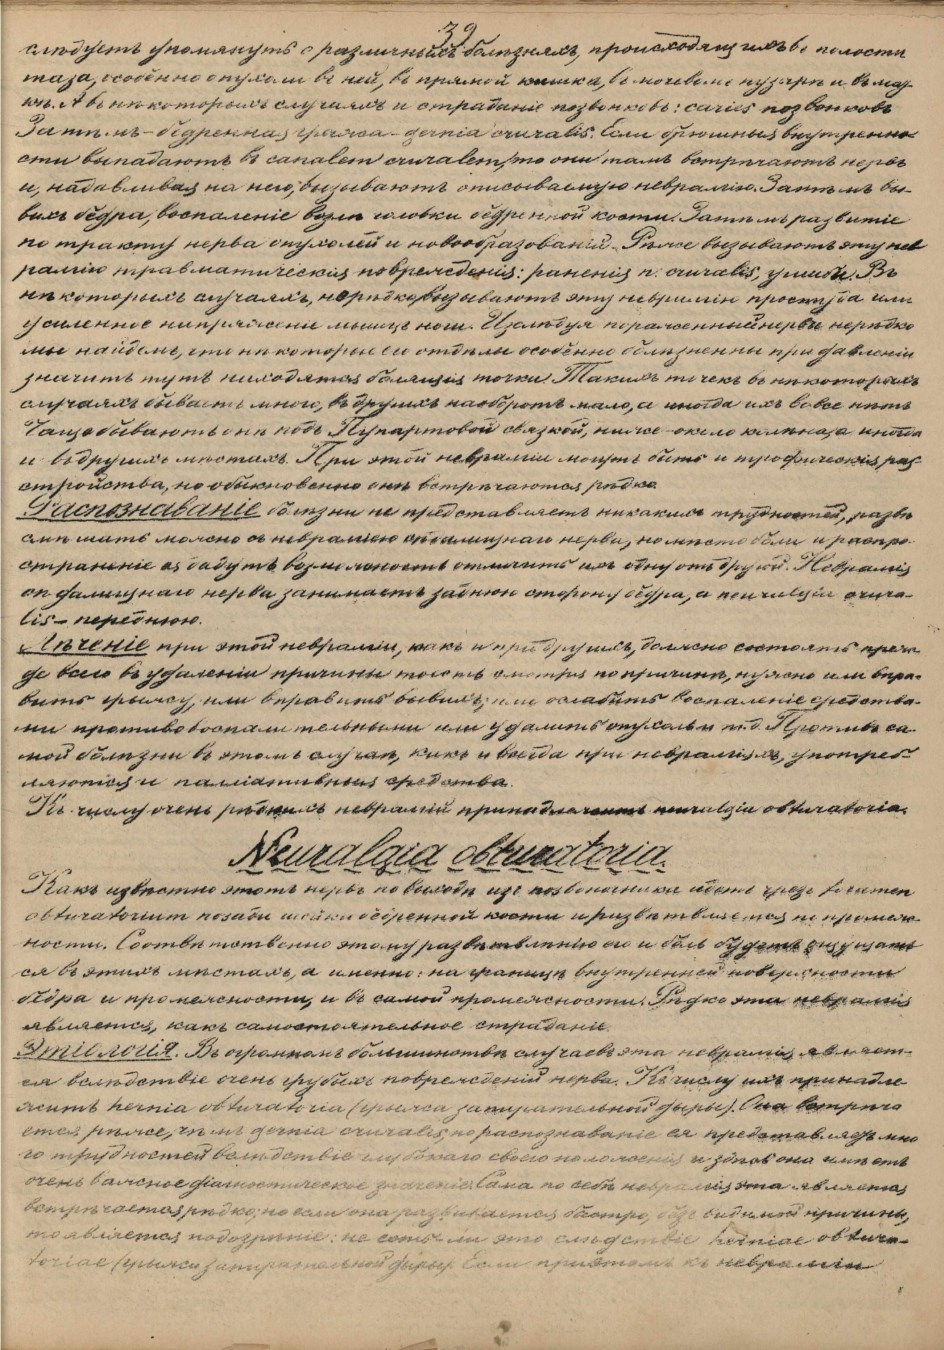 39
слѣдуетъ упомянуть о различныхъ болѣзняхъ, происходящихъ въ полости
таза, особенно опухоли въ ней, въ прямой кишкѣ, въ мочевомъ пузырѣ и въ мат-
кѣ. А въ нѣкоторыхъ случаяхъ и страданіе позвонковъ: caries позвонковъ
Затѣмъ – бедренная грыжа – hernia cruralis. Если брюшныя внутренно-
сти выпадаютъ въ canalem cruralem, то они тамъ встрѣчаютъ нервъ
и, надавливая на него, вызываютъ описываемую невралгію. Затѣмъ вы-
вихъ бедра, воспаленіе возлѣ головки бедренной кости. Затѣмъ развитіе
по тракту нерва опухолей и новообразованій. Рѣже вызываютъ эту нев
ралгію травматическія поврежденія: раненія n. cruralis, ушибы. Въ
нѣкоторыхъ случаяхъ, нерѣдко, вызываютъ эту невралгію простуда или
усиленное напряженіе мышцъ ноги. Изслѣдуя пораженный нервъ нерѣдко
мы найдемъ, что нѣкоторые его отдѣлы особенно болѣзненны при давленіи
значитъ тутъ находятся болящія точки. Такихъ точекъ въ нѣкоторыхъ
случаяхъ бываетъ много, въ другихъ наоборотъ мало, а иногда ихъ вовсе нѣтъ
Чаще бываютъ онѣ подъ Пупартовой связкой, ниже – около колѣна иногда
и въ другихъ мѣстахъ. При этой невралгіи могутъ быть и трофическія раз-
стройства, но обыкновенно онѣ встрѣчаются рѣдко.
Распознаваніе болѣзни не представляетъ никакихъ трудностей, развѣ
смѣшать можно съ невралгіею сѣдалищнаго нерва, но мѣсто боли и распро-
страненіе ея дадутъ возможность отличить ихъ одну отъ другой. Невралгія
сѣдалищнаго нерва занимаетъ заднюю сторону бедра, а невралгія crura-
lis – переднюю.
Лѣченіе при этой невралгіи, какъ и при другихъ, должно состоять преж-
де всего въ удаленіи причины то есть смотря по причинѣ, нужно или впра-
вить грыжу, или вправить вывихъ, или ослабить воспаленіе средства-
ми противовоспалительными или удалить опухоль и т.д. Противъ са-
мой болѣзни въ этомъ случаѣ, какъ и всегда при невралгіяхъ, употреб-
ляются и палліативныя средства.
Къ числу очень рѣдкихъ невралгій принадлежитъ neuralgia obturatoria.
Neuralgia obturatoria.
Какъ извѣстно этотъ нервъ по выходѣ изъ позвоночника идетъ чрезъ foramen
obturatorium позади шейки бедренной кости и развѣтвляется по промеж-
ности. Соотвѣтственно этому развѣтвленію его и боль будетъ ощущать
ся въ этихъ мѣстахъ, а именно: на границѣ внутренней поверхности
бедра и промежности, и въ самой промежности. Рѣдко эта невралгія
является, какъ самостоятельное страданіе.
Этіологія. Въ огромномъ большинствѣ случаевъ эта невралгія являет-
ся вслѣдствіе очень грубыхъ поврежденій нерва. Къ числу ихъ принадле
житъ hernia obturatoria (грыжа запирательной дыры). Она встрѣча
ется рѣже, чѣмъ hernia cruralis, но распознаваніе ея представляетъ мно
го трудностей вслѣдствіе глубокаго своего положенія и здѣсь она имѣетъ
очень важное діагностическое значеніе. Сама по себѣ невралгія эта является
встрѣчается рѣдко; но если она развивается быстро, безъ видимой причины,
то является подозрѣніе: не есть ли это слѣдствіе herniae obtura-
toriae (грыжи запирательной дыры). Если при этомъ къ невралгіи